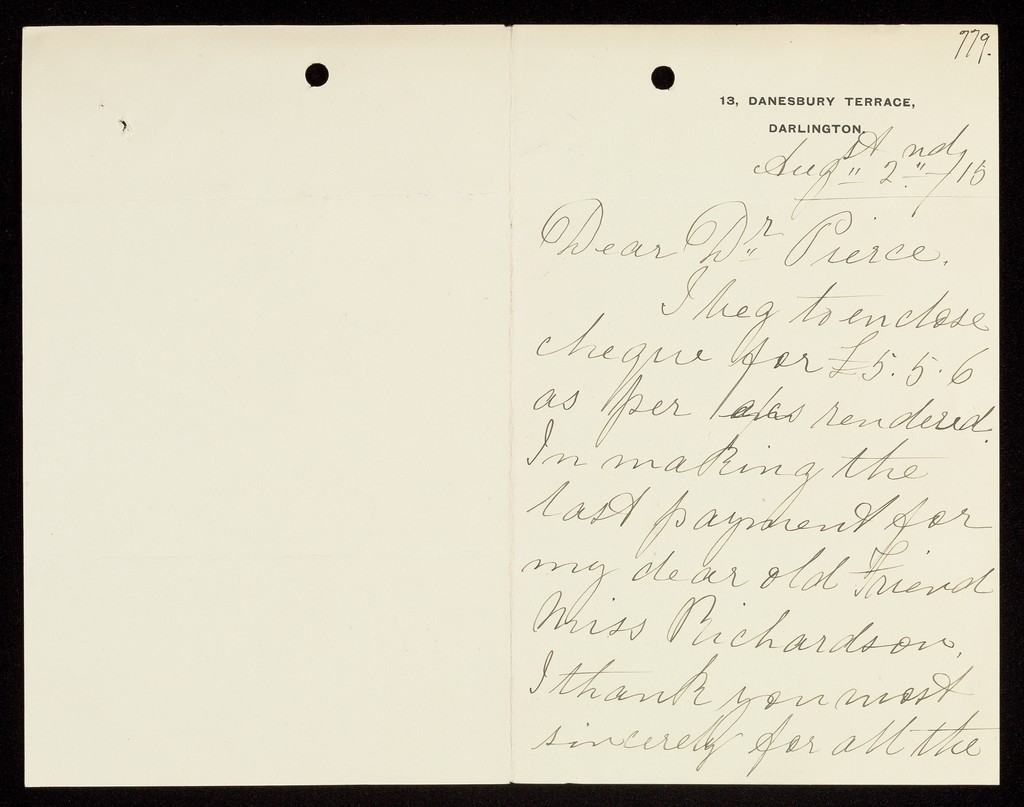 779.
13, DANESBURY TERRACE,
DARLINGTON.
Augst 2nd/15
Dear Dr Pierce.
I beg to enclose
cheque for £5.5.6
as per a/cs rendered.
In making the
last payment for
my dear old Friend
Miss Richardson,
I thank you most
sincerely for all the